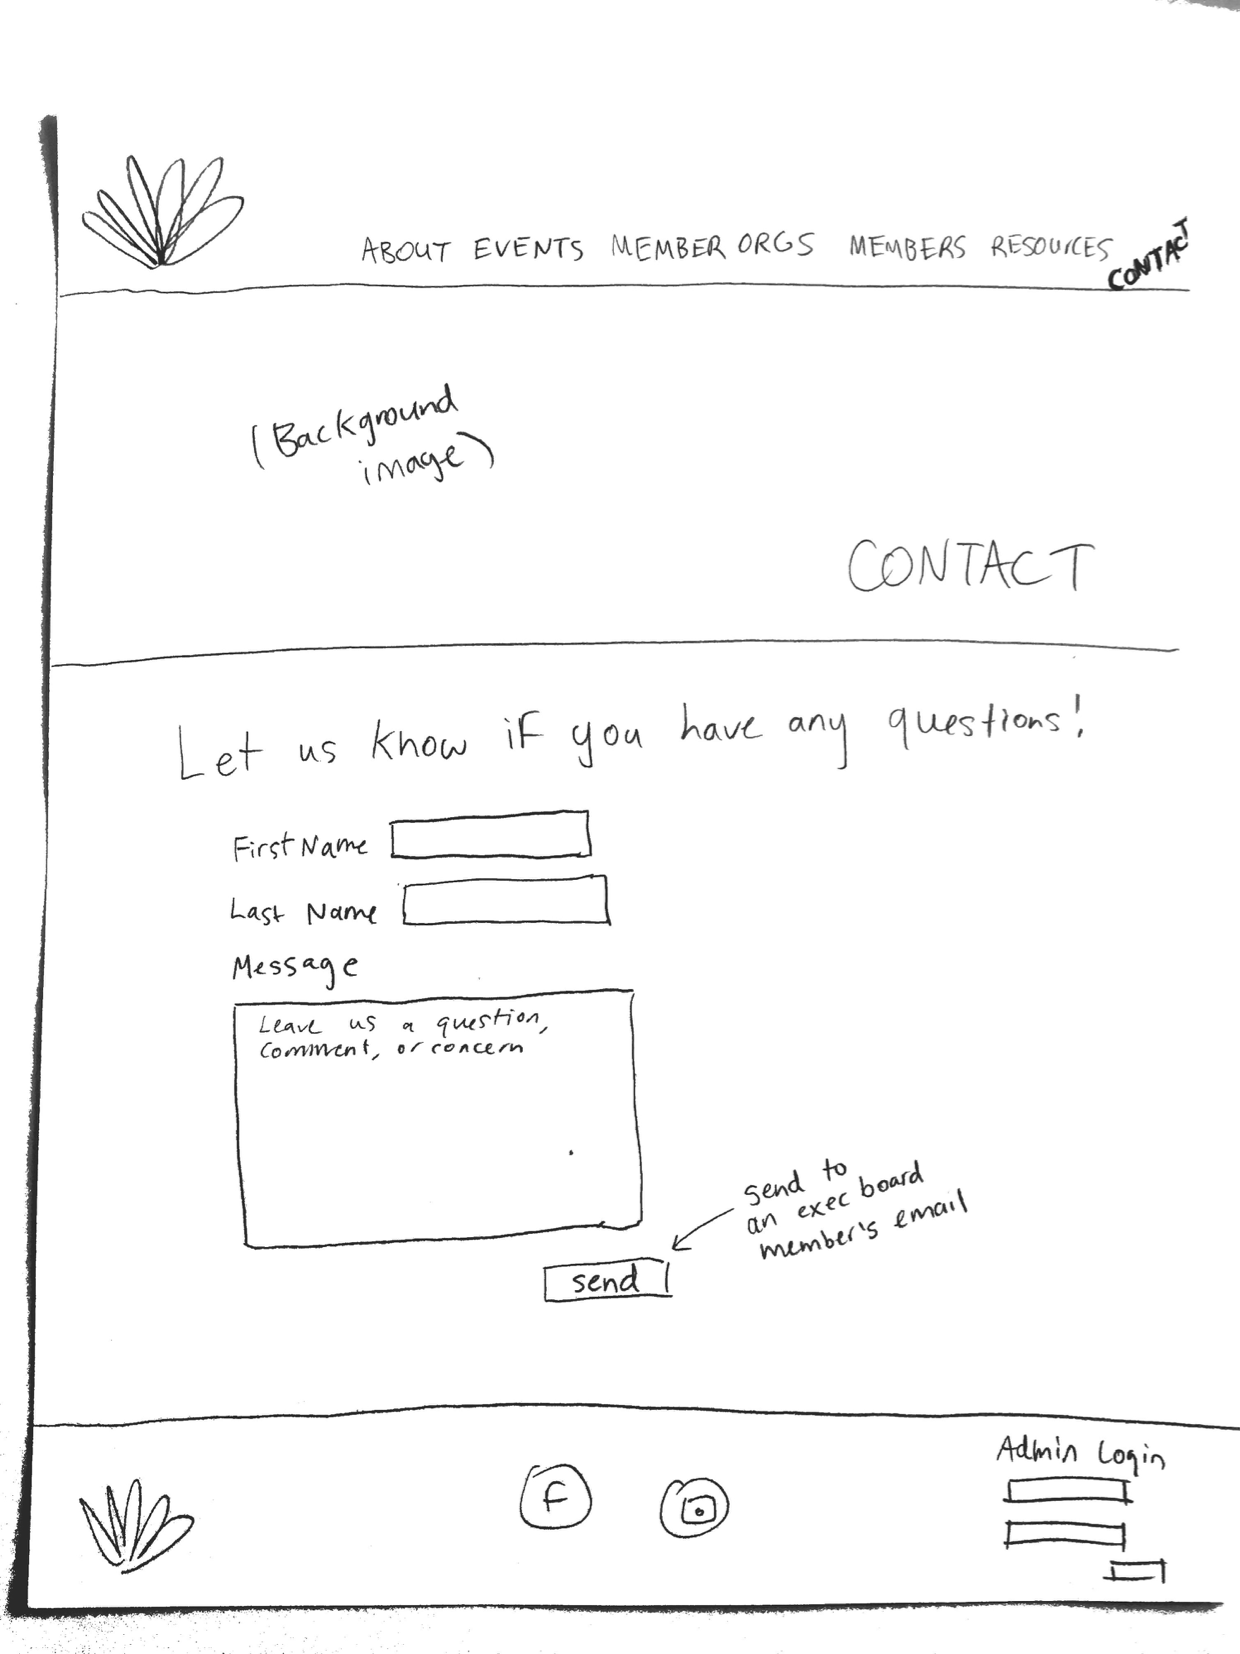 ABOUT EVENTS MEMBER ORGS MEMBERS RESOURCES CONTACT
(Background
image)
CONTACT
Let us know if you have any questions!
First Name
Last Name
Message
Leave us a question,
comment, or concern
send to
an exec board
member's email
send
Admin Login
F